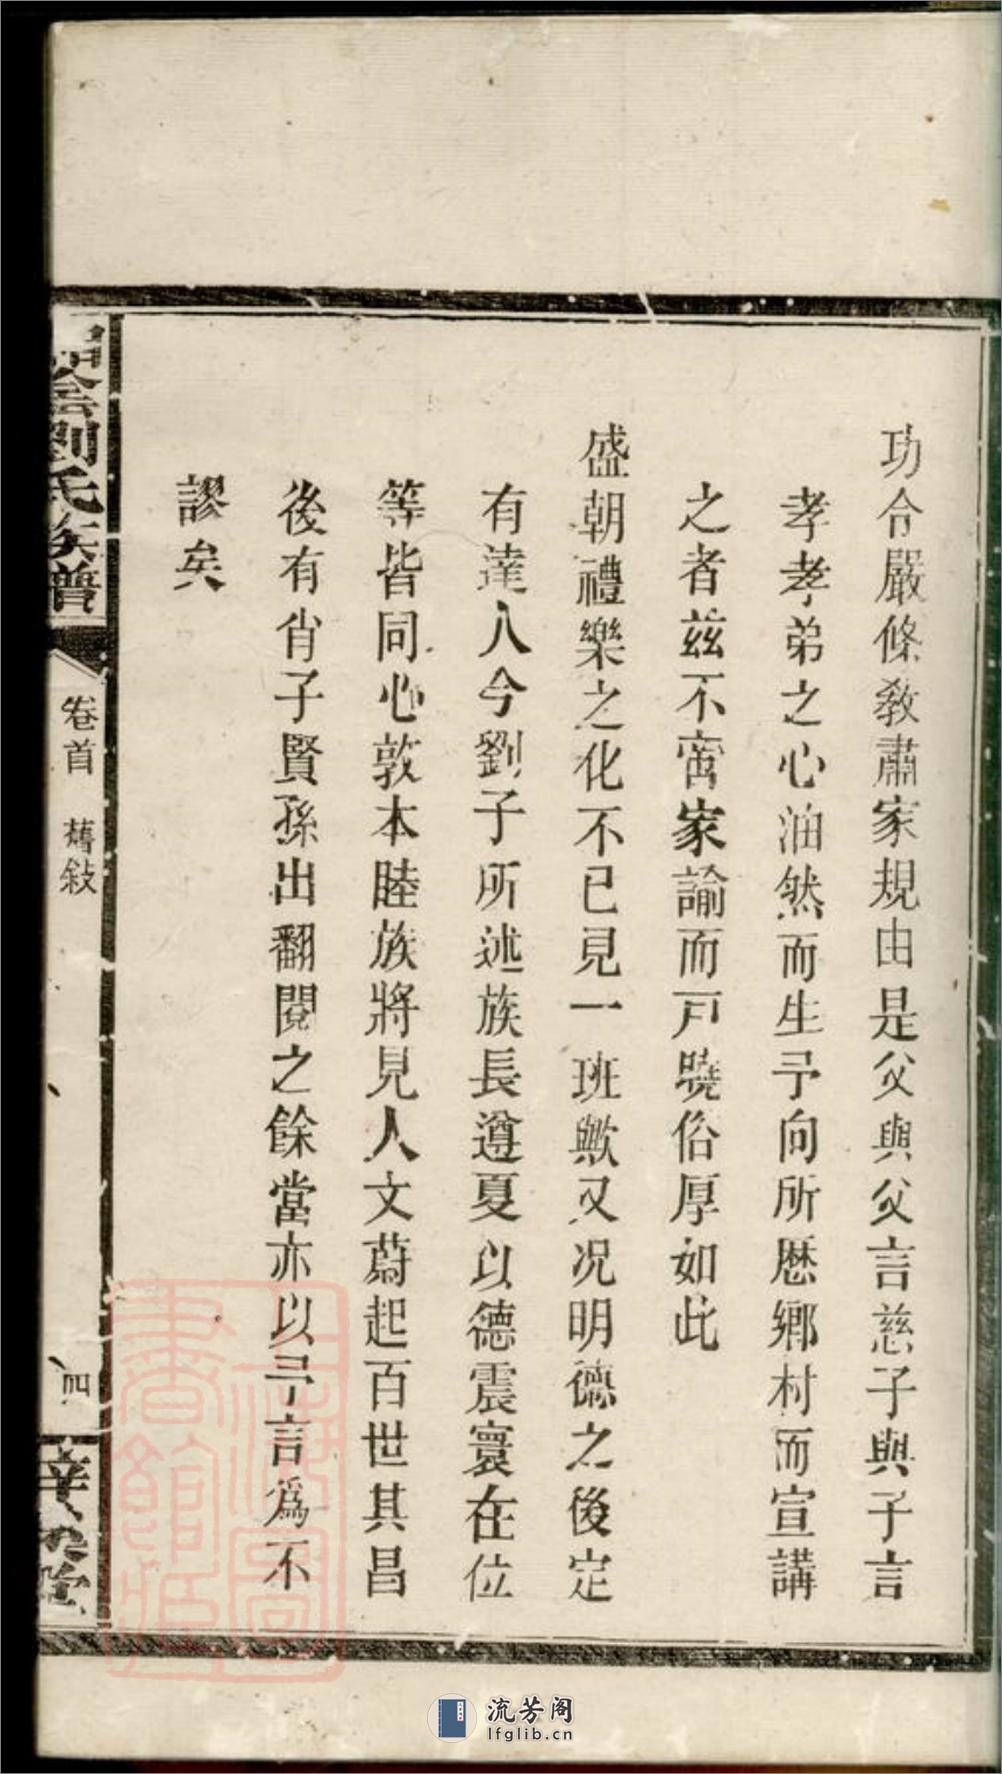 功令嚴條教肅家規由是父與父言慈子與子言
孝孝弟之心油然而生予向所厯鄉村而宣講
之者茲不啻家諭而戸曉俗厚如此
盛朝禮樂之化不已見一班歟又况明德之後定
有達人今劉子所述族長遵夏以德震寰在位
等皆同心敦本睦族將見人文蔚起百世其昌
後有肖子賢孫出翻閱之餘當亦以予言爲不
謬矣
劉氏族譜
卷首 舊敍
四
堂
上海圖
書館藏
流芳阁
lfglib.cn